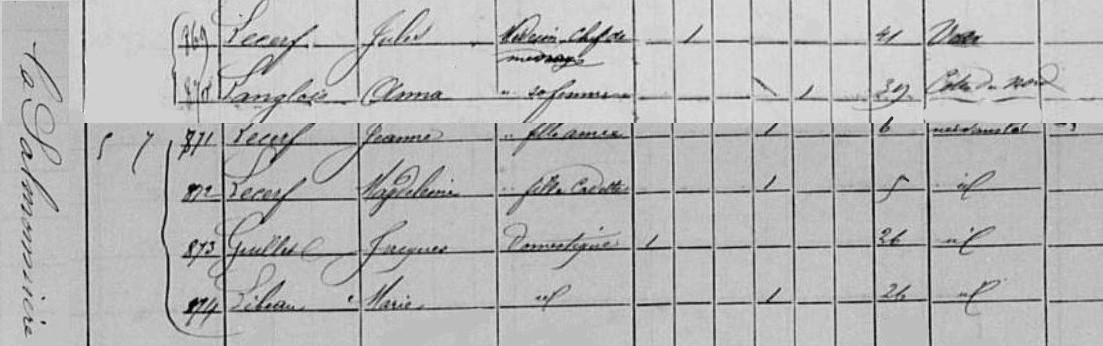 La Salmonière
869 Lecerf Jules Médecin Chef de 1 41
ménage
870 Langlois Anna " sa femme 1 39 Côtes du Nord
5 7 871 Lecerf Jeanne " fille ainée 1 6
872 Lecerf Magdeleine " fille Cadette 1 5 id
873 Guillet Jacques Domestique 1 26 id
874 Marie id 1 26 id